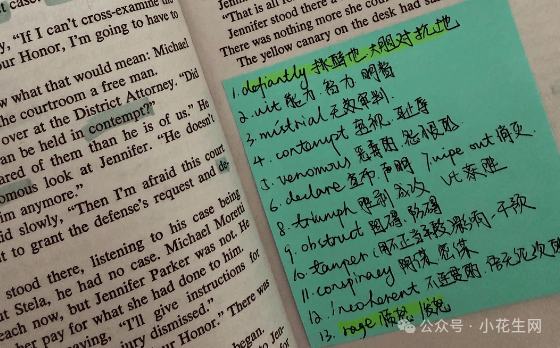 t case.
y, "If I can't cross-examine the
our Honor, I'm going to have to
w what that would mean: Michael
he courtroom a free man.
over at the District Attorney. "Did
an be held in contempt?"
ared of them than he is of us." He
omous look at Jennifer. "He doesn't
im anymore."
id slowly, "Then I'm afraid this court
t to grant the defense's request and de-
stood there, listening to his case being
ut Stela, he had no case. Michael Moretti
each now, but Jennifer Parker was not. He
er pay for what she had done to him.
oving, "I'll give instructions for
jury dismissed." There was
our Honor."
began.
to Jen-
"That is all fo
Jennifer stood there a
There was nothing more she cou
The yellow canary on the desk had sa
1. defiantly 挑衅地.大胆对抗地
2. wit 能力.智力 明智
3. mistrial 无效审判.
4. contempt 蔑视.耻辱
5. venomous 恶毒的
6. declare 宣布.声明 /wipe out 消灭.
8. triumph 胜利
9. obstruct 阻碍.妨碍
10. tamper 干预
11. conspiracy 阴谋
12. incoherent 不连贯的.语无伦次的
13. rage 愤怒
公众号·小花生网